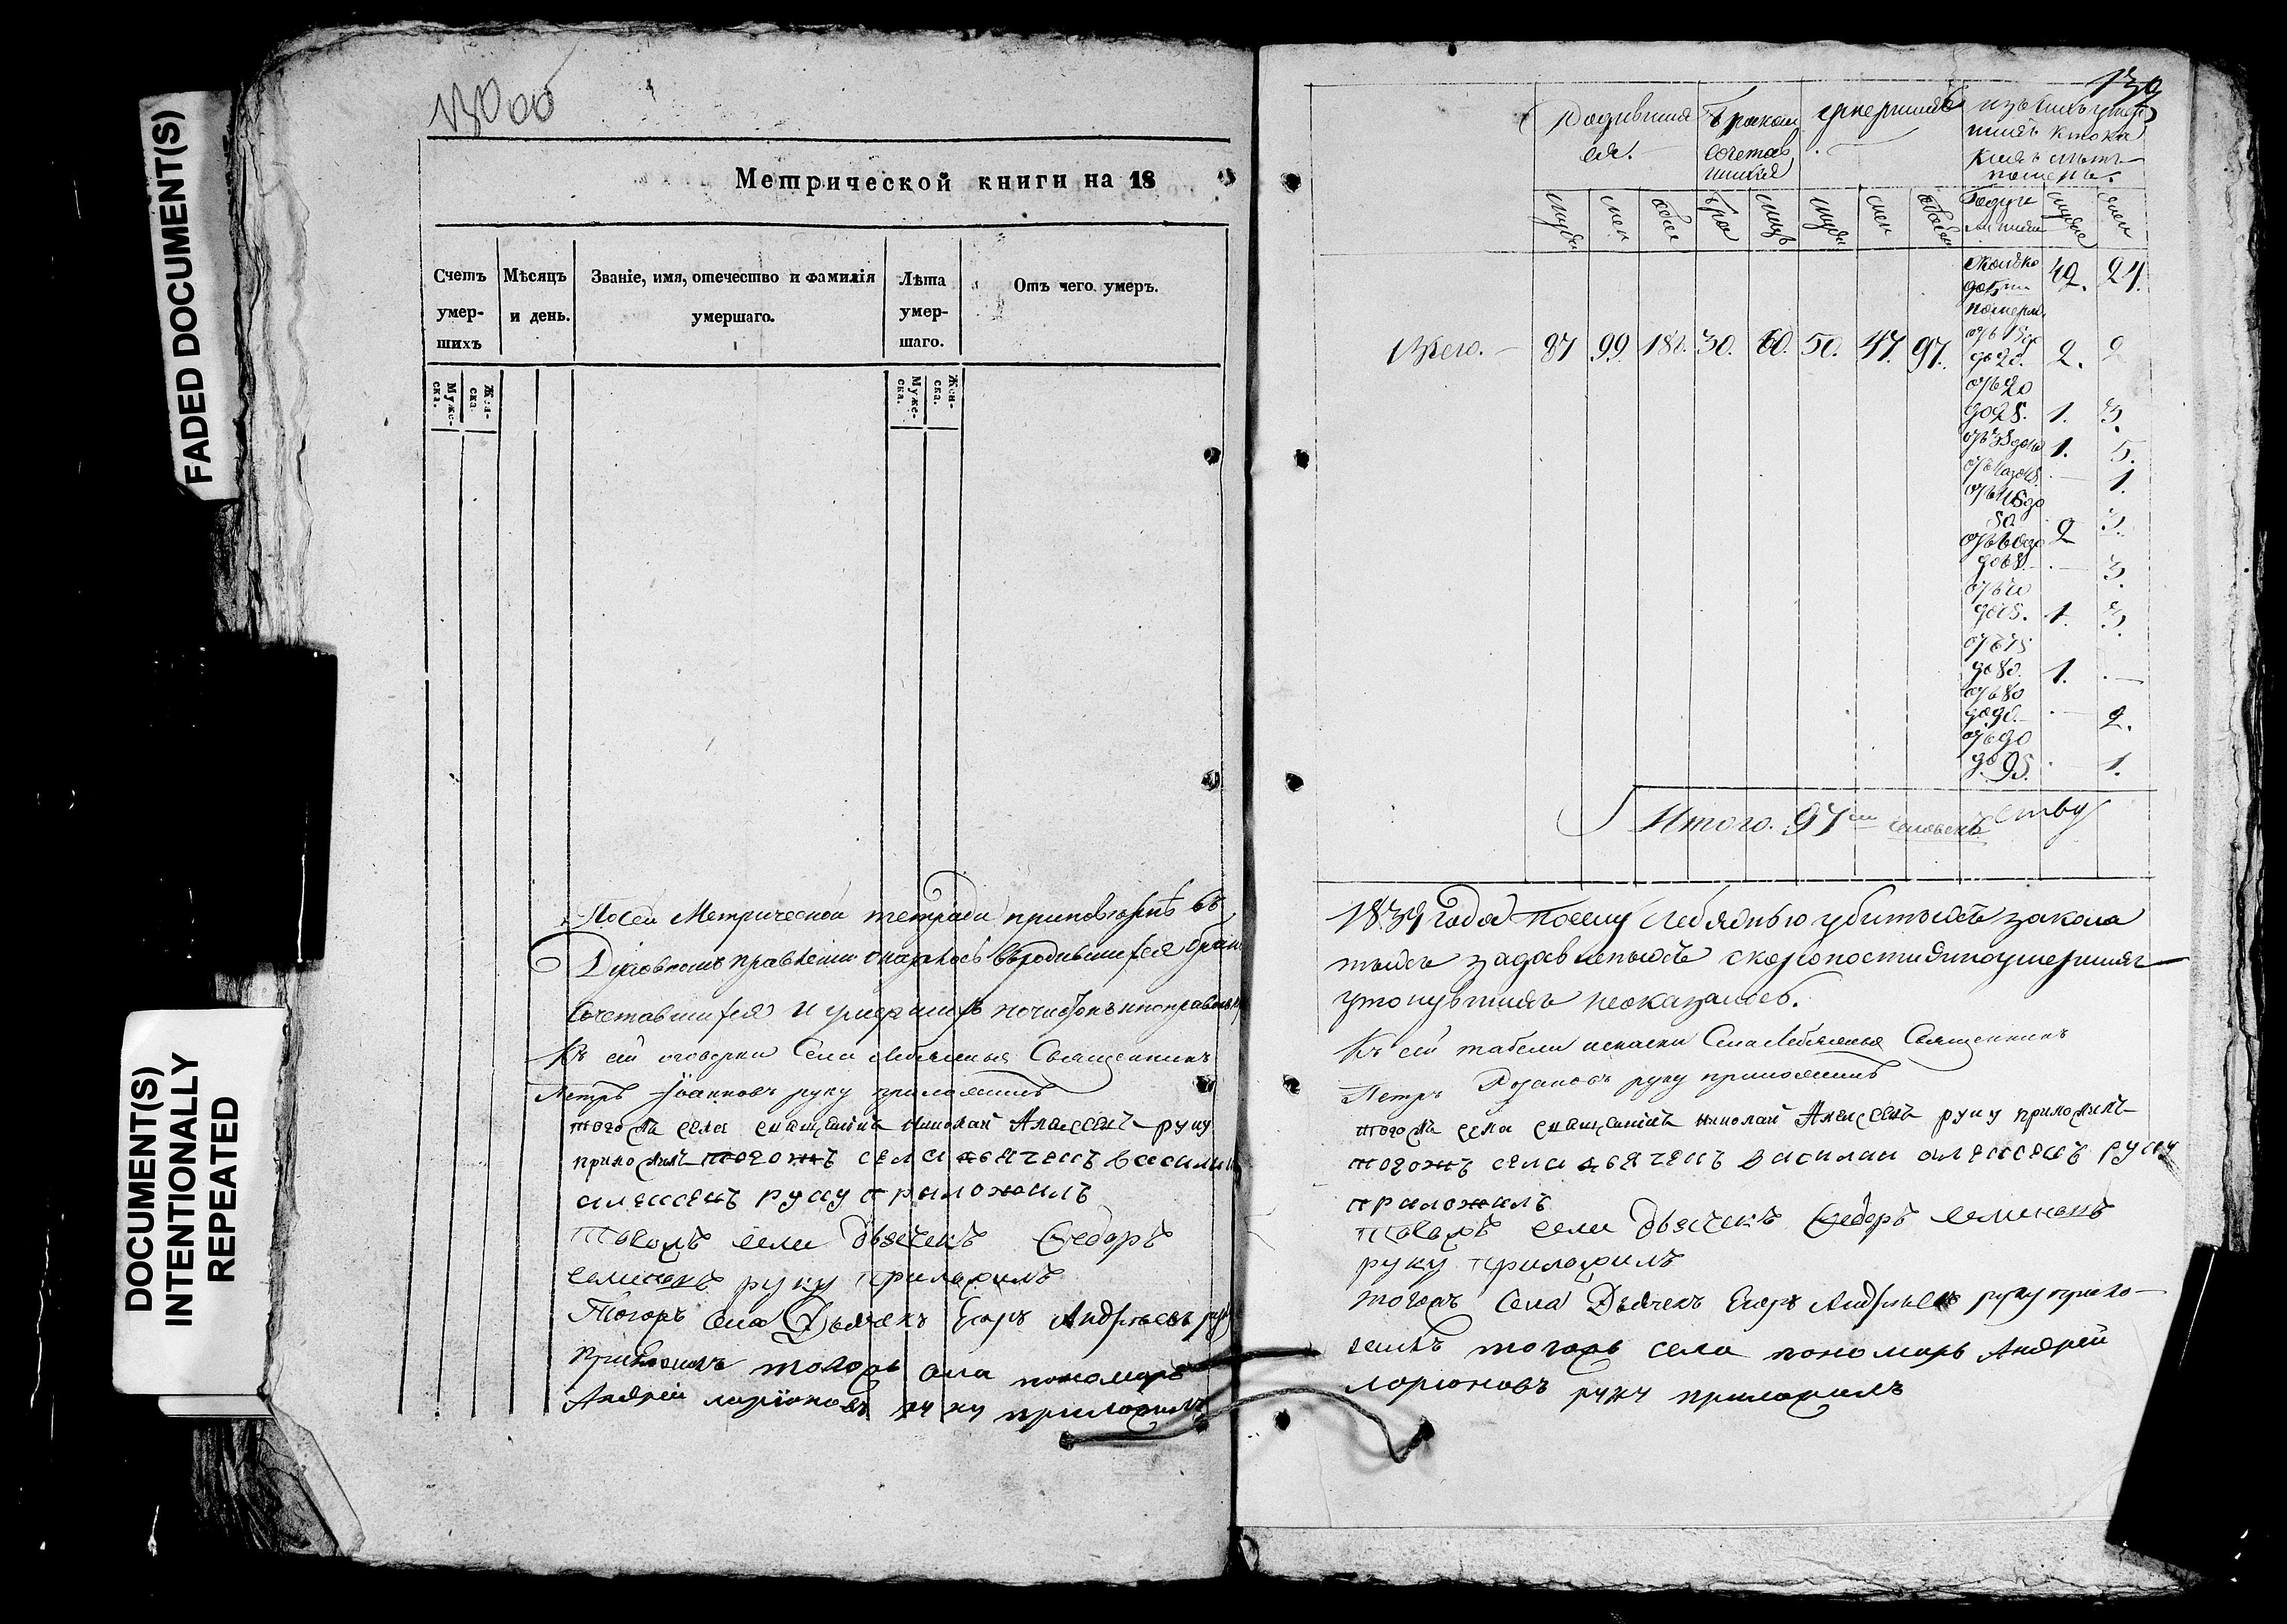 FADED DOCUMENT(S)
DOCUMENT(S)
INTENTIONALLY
REPEATED
Метрической книги на 18
Счетъ умер- шихъ
Мѣсяцъ и день.
Званіе, имя, отечество и фамилія умершаго.
Лѣта умер- шаго.
Отъ чего умеръ.
Муже- ска.
Жен- ска.
Муже- ска.
Жен- ска.
По сей Метрической тетради при повѣркѣ въ
Духовномъ правленіи оказалось въ родившихся бра
сочетавшихся и умершихъ
Къ сей оговорки Села Лебяжья Священникъ
Петръ Іоанновъ руку приложилъ
тогожъ села священникъ Николай Алексеевъ руку
приложилъ тогожъ села дьячекъ Василий
алексеевъ руку приложилъ
тогожъ села дьячекъ Федоръ
семеновъ руку приложилъ
Тогожъ села Дьячекъ Егоръ Андреевъ
приложилъ тогожъ села пономарь
Андрей ларионовъ руку приложилъ
139
Родившия ся.
Бракомъ сочетав шихся
умершихъ
изъ сихъ умер шихъ
муж жен обоего бра лицъ муж жен обоего муж жен
сколько до 5ти померло 42. 24.
Всего. 87 99. 186. 30. 60. 50. 47. 97.
отъ 15 до 20. 2. 2
отъ 20 до 25. 1. 3.
отъ 35 до 40 1. 5.
отъ 40 до 45. — 1.
отъ 45 до 50. 2 3.
отъ 60 до 65. — 3.
отъ 70 до 75. 1. 3.
отъ 75 до 80. 1. —
отъ 80 до 90. — 2.
отъ 90 до 95. — 1.
Итого. 97ми человекъ
1839 года по селу Лебяжью убитыхъ закола
тыхъ задавленыхъ скоропостижно умершихъ
утонувшихъ неоказалось.
Къ сей табели и Села Лебяжья Священникъ
Петръ Розановъ руку приложилъ
тогожъ села священникъ Николай Алексеевъ руку приложилъ
тогожъ села дьячекъ василии алексеевъ руку
приложилъ
тогожъ села дьячекъ Федоръ семеновъ
руку приложилъ
тогожъ Села Дьячекъ Егоръ Андреевъ руку прило-
жилъ тогожъ села пономарь Андрей
ларионовъ руку приложилъ